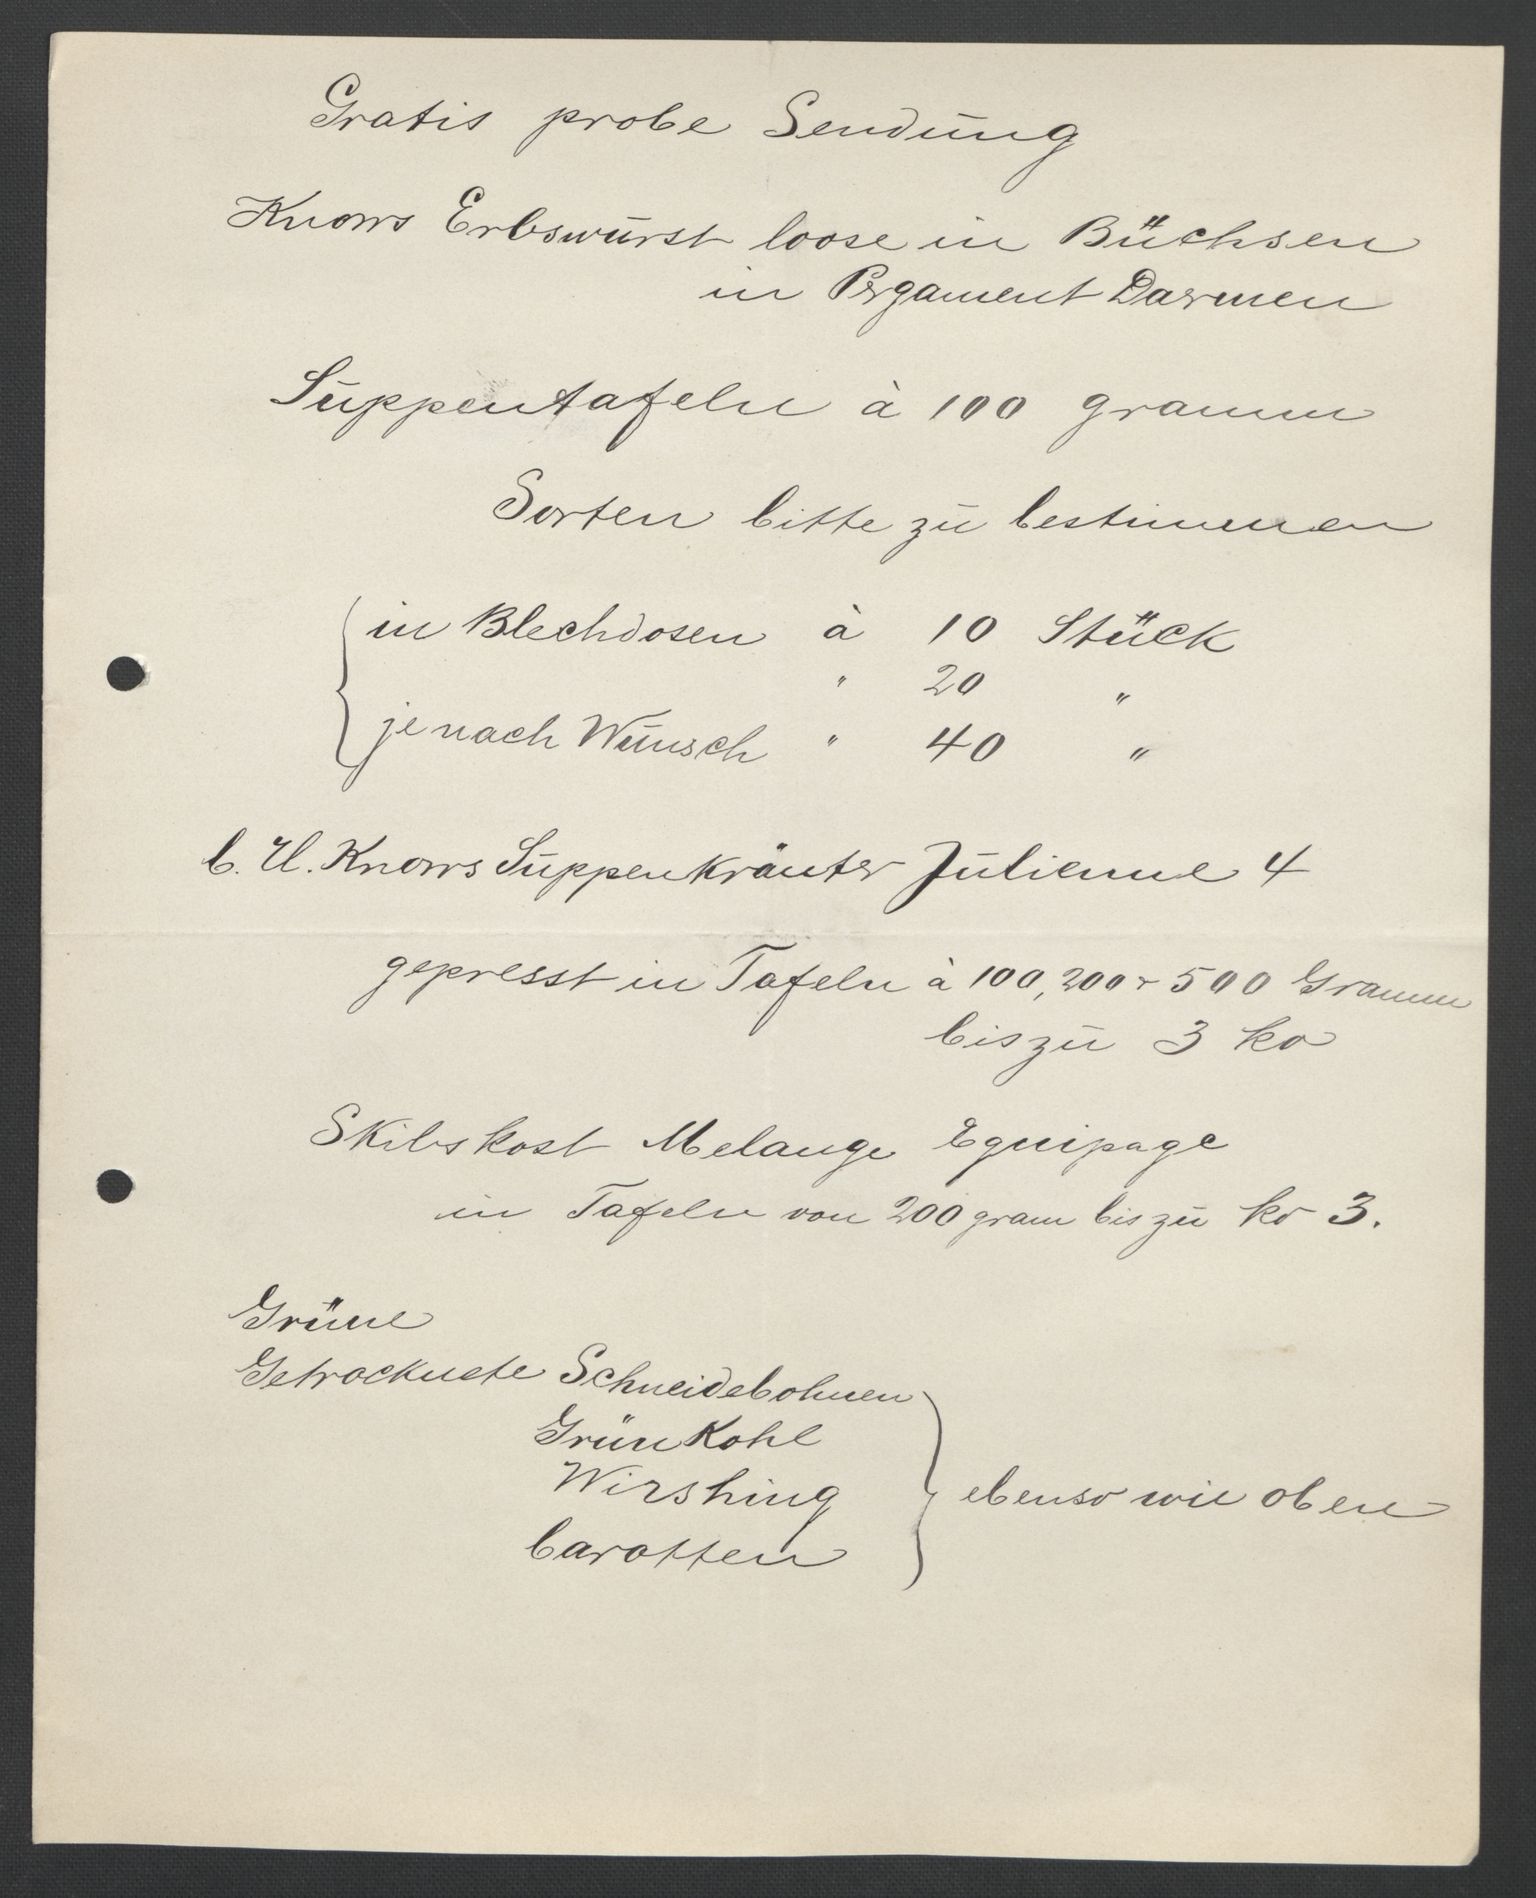 Gratis probe Sendung
Knorrs Erbswurst loose in Büchsen
in Pergament Darmen
Suppentafeln à 100 gramm
Sorten bitte zu bestimmen
in Blechdosen à 10 Stück
" 20 "
je nach Wunsch " 40 "
C. H. Knorrs Suppenkräuter Julienne 4
gepresst in Tafeln à 100, 200 + 500 Gramm
bis zu 3 ko
Skibskost Melange Equipage
in Tafeln von 200 gram bis zu ko 3.
Grüne
Getrocknete Schneidebohnen
Grünkohl
Wirshing
Carotten
ebenso wie oben